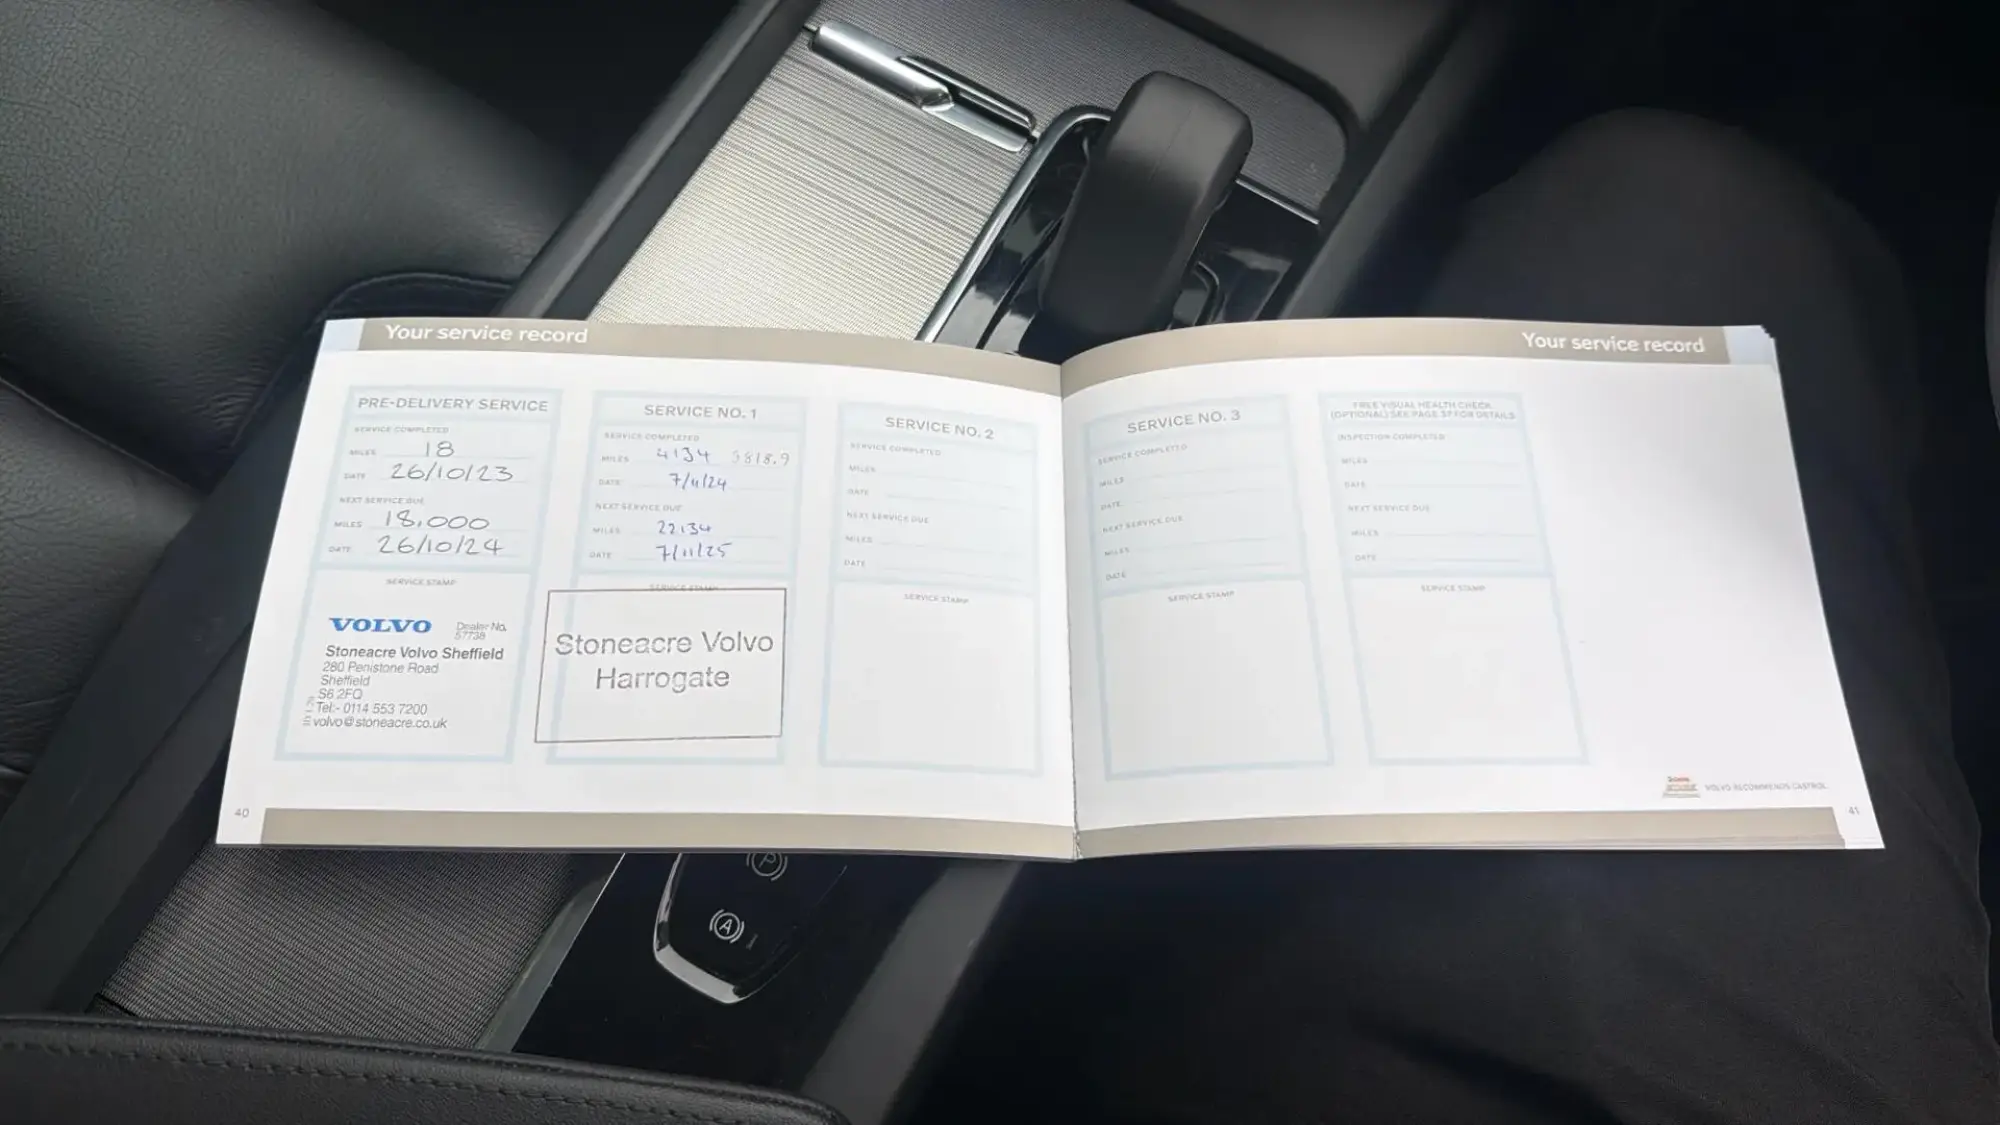 Your service record
PRE-DELIVERY SERVICE
SERVICE COMPLETED
MILES 18
DATE 26/10/23
NEXT SERVICE DUE
MILES 18,000
DATE 26/10/24
SERVICE STAMP
VOLVO
Dealer No.
57738
Stoneacre Volvo Sheffield
280 Penistone Road
Sheffield
S6 2FQ
Tel:- 0114 553 7200
volvo@stoneacre.co.uk
SERVICE NO. 1
SERVICE COMPLETED
MILES 4134 3818.9
DATE 7/11/24
NEXT SERVICE DUE
MILES 22134
DATE 7/11/25
SERVICE STAMP
Stoneacre Volvo
Harrogate
SERVICE NO. 2
SERVICE COMPLETED
MILES
DATE
NEXT SERVICE DUE
MILES
DATE
SERVICE STAMP
40
Your service record
SERVICE NO. 3
SERVICE COMPLETED
MILES
DATE
NEXT SERVICE DUE
MILES
DATE
SERVICE STAMP
FREE VISUAL HEALTH CHECK
(OPTIONAL) SEE PAGE 37 FOR DETAILS
INSPECTION COMPLETED
MILES
DATE
NEXT SERVICE DUE
MILES
DATE
SERVICE STAMP
VOLVO RECOMMENDS CASTROL
41
P
A